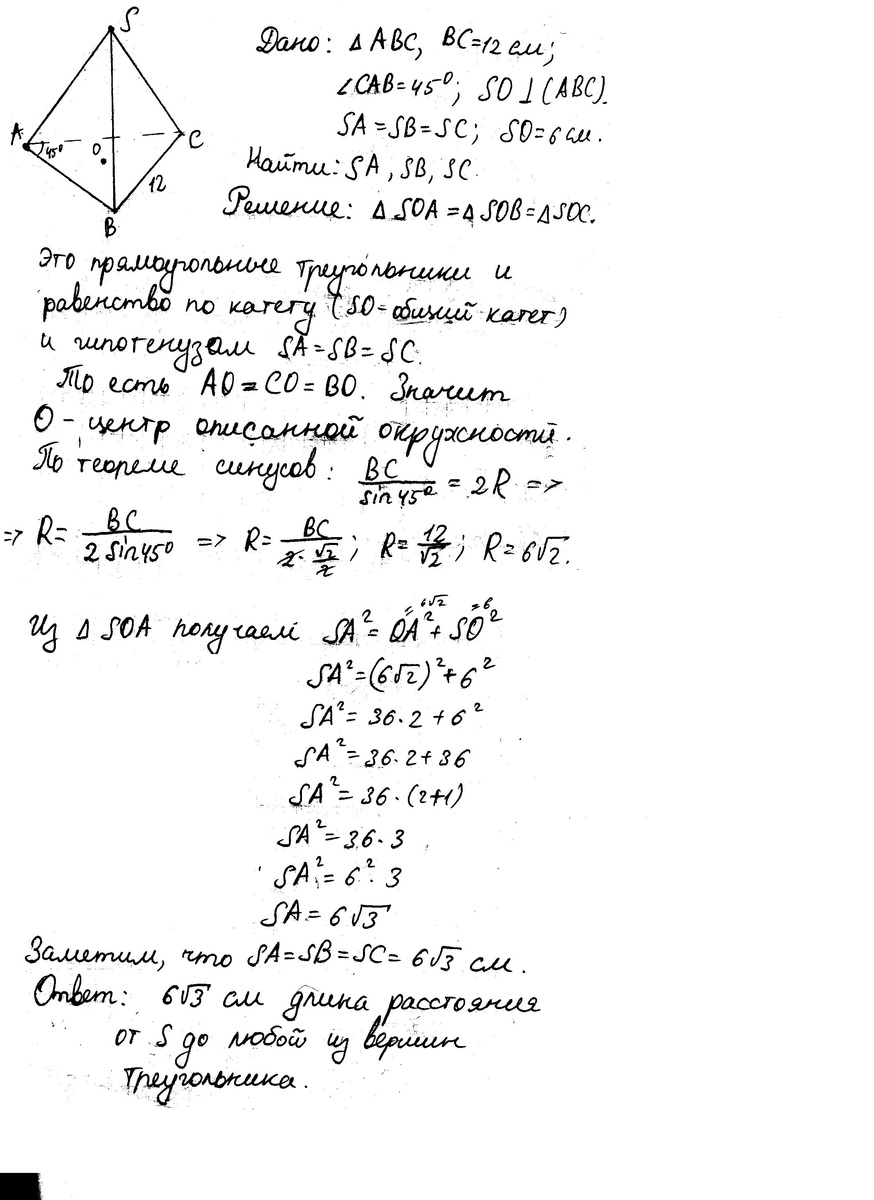 S
A
45°
O
C
12
B
Дано: Δ ABC, BC=12 см;
∠CAB=45°; SO⊥(ABC).
SA=SB=SC; SO=6 см.
Найти: SA, SB, SC.
Решение: Δ SOA = Δ SOB = Δ SOC.
Это прямоугольные треугольники и
равенство по катету (SO - общий катет)
и гипотенузам SA=SB=SC.
То есть AO=CO=BO. Значит
O - центр описанной окружности.
По теореме синусов: BC/sin45° = 2R =>
=> R= BC/(2 sin45°) => R= BC/(2·√2/2); R= 12/√2; R=6√2.
=6√2 =6
Из Δ SOA получаем SA²=OA²+SO²
SA²=(6√2)²+6²
SA²=36·2+6²
SA²=36·2+36
SA²=36·(2+1)
SA²=36·3
SA²=6²·3
SA=6√3
Заметим, что SA=SB=SC=6√3 см.
Ответ: 6√3 см длина расстояния
от S до любой из вершин
треугольника.